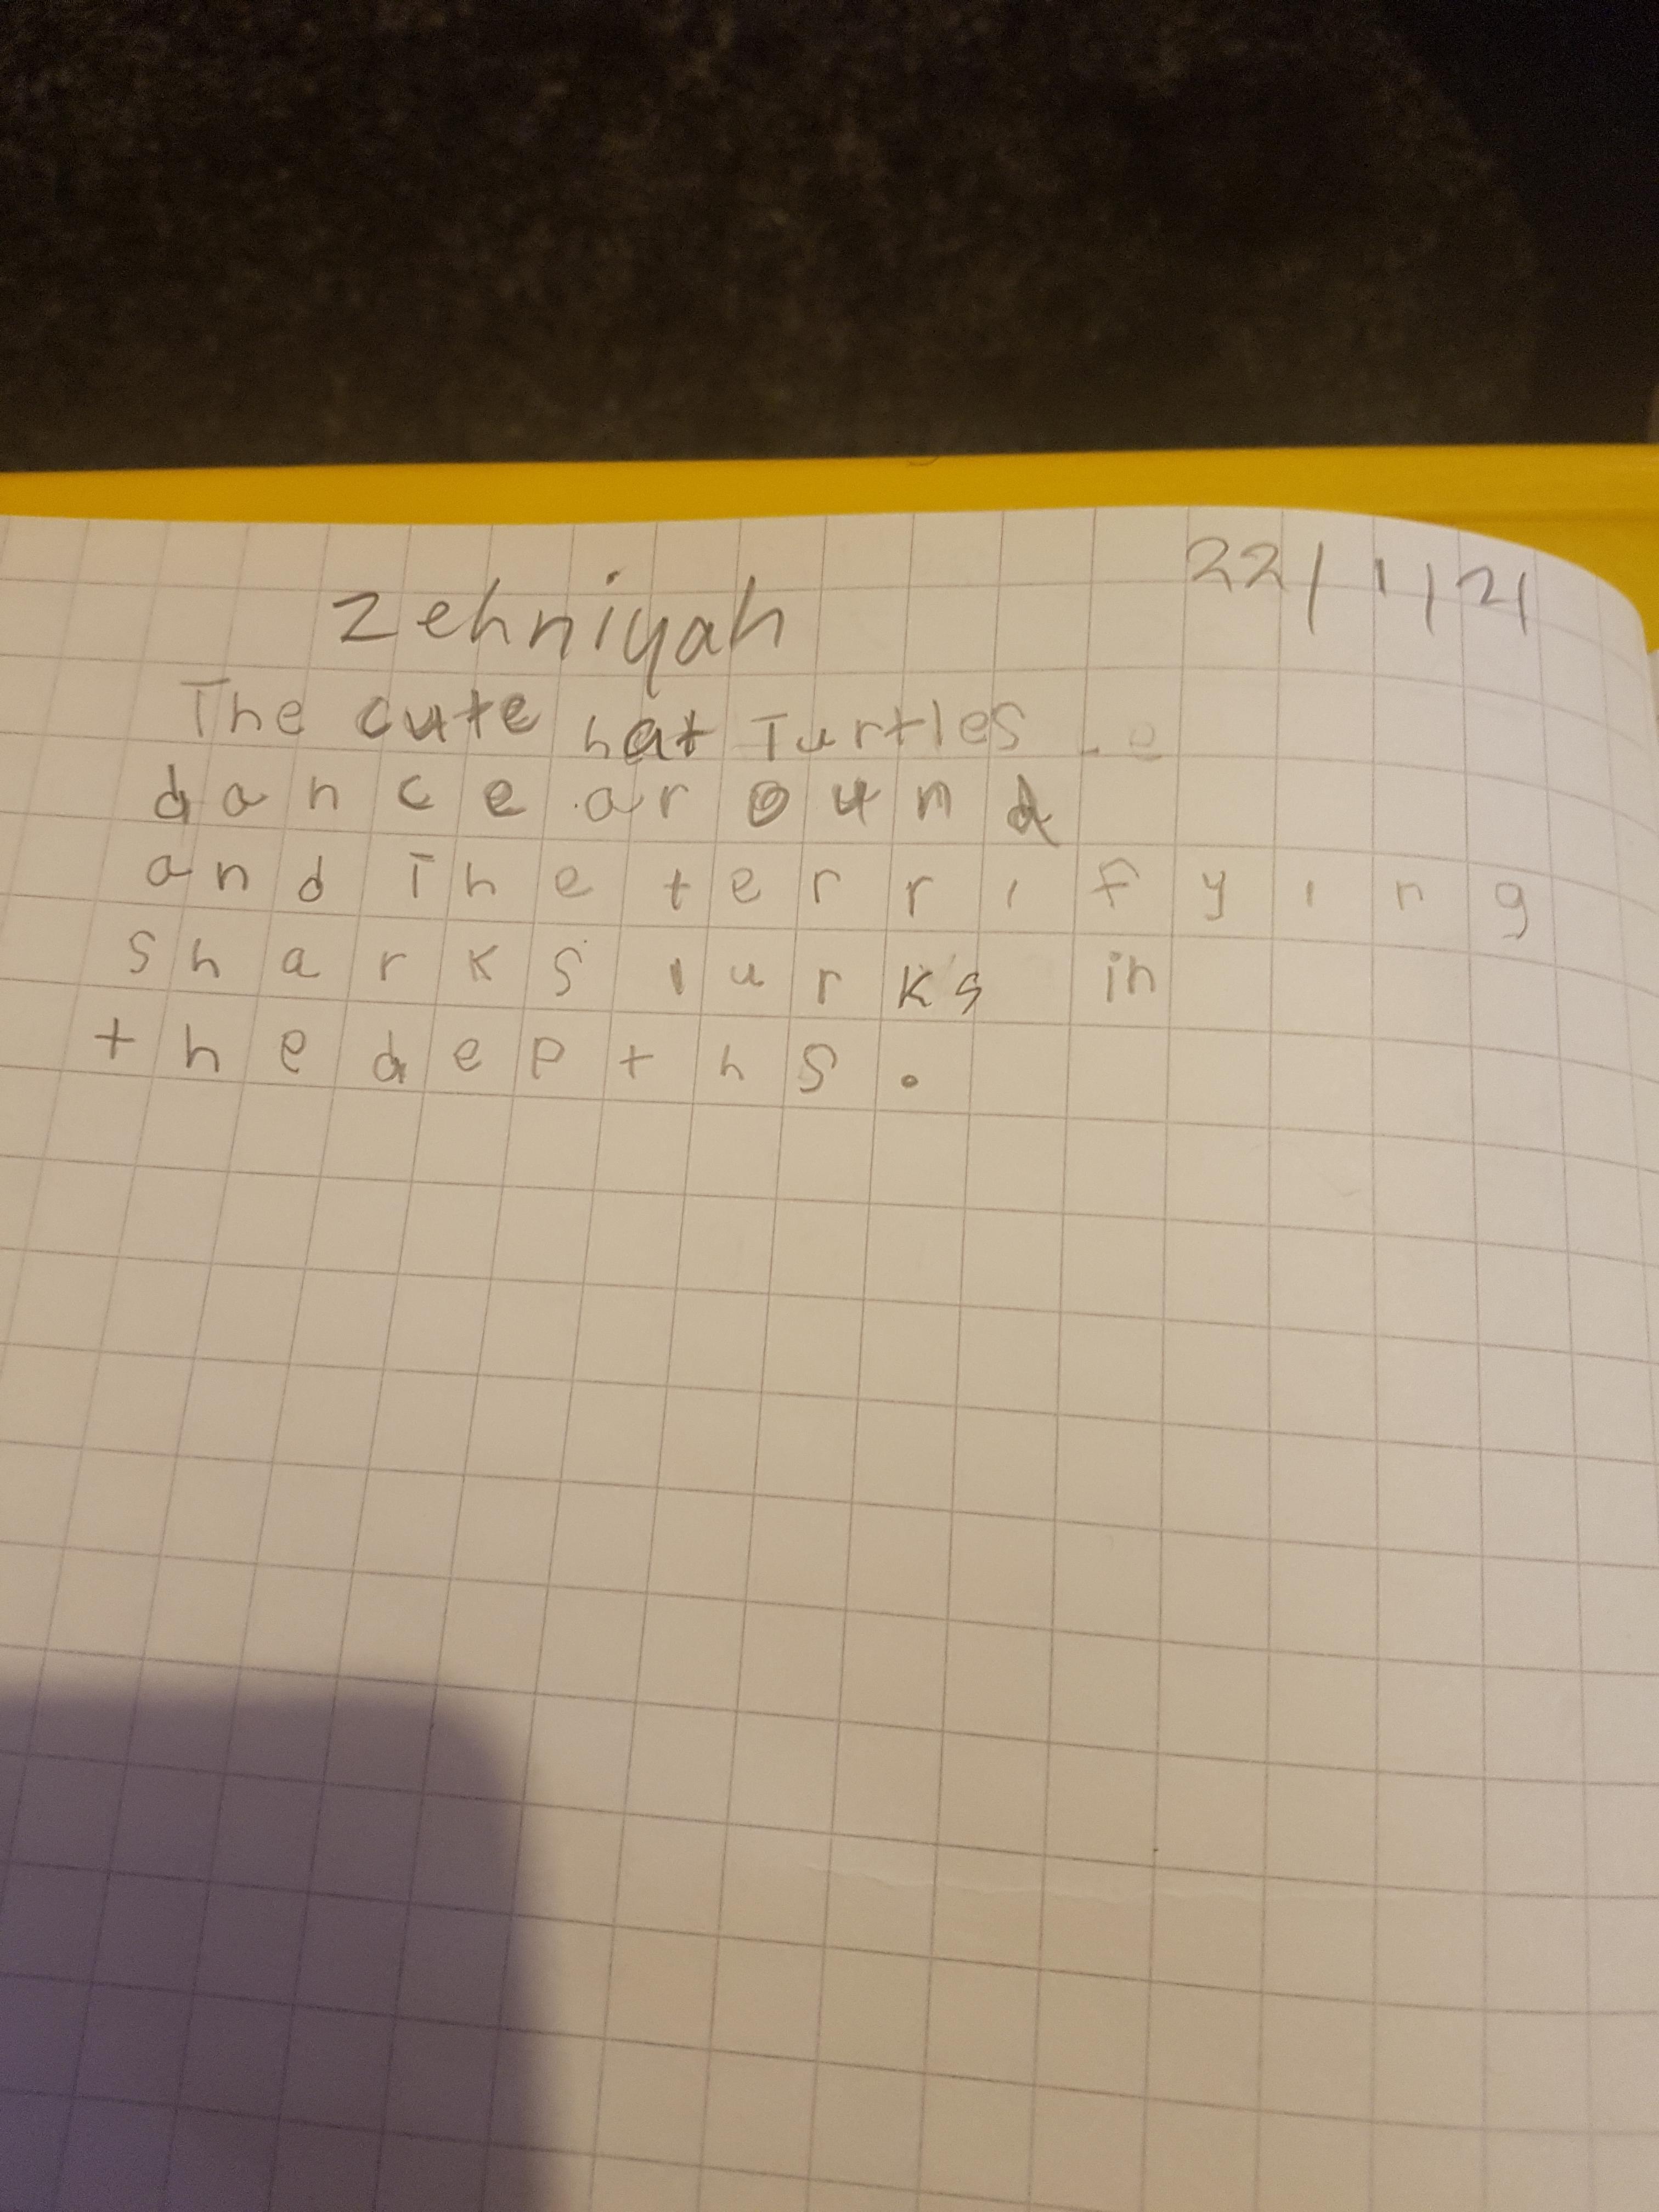 zehniyah 22/1/21
The cute hat Turtles
dance around
and The terrifying
sharks lurks in
the depths.